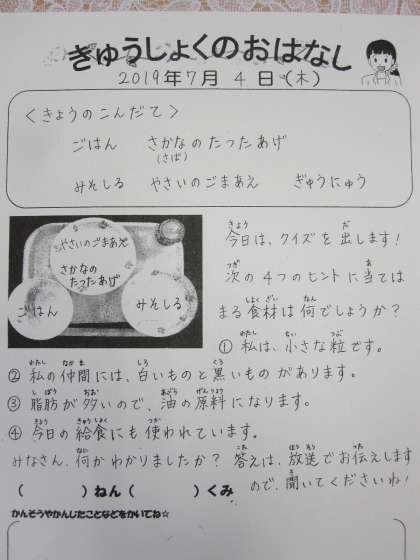 きゅうしょくのおはなし
2019年7月4日(木)
<きょうのこんだて>
ごはん さかなのたつたあげ
(さば)
みそしる やさいのごまあえ ぎゅうにゅう
やさいのごまあえ
さかなの
たつたあげ
ごはん
みそしる
今日は、クイズを出します!
次の4つのヒントに当ては
まる食材は何でしょうか?
① 私は、小さな粒です。
② 私の仲間には、白いものと黒いものがあります。
③ 脂肪が多いので、油の原料になります。
④ 今日の給食にも使われています。
みなさん、何かわかりましたか? 答えは、放送でお伝えします
ので、聞いてくださいね!
( )ねん( )くみ
かんそうやかんじたことなどをかいてね☆